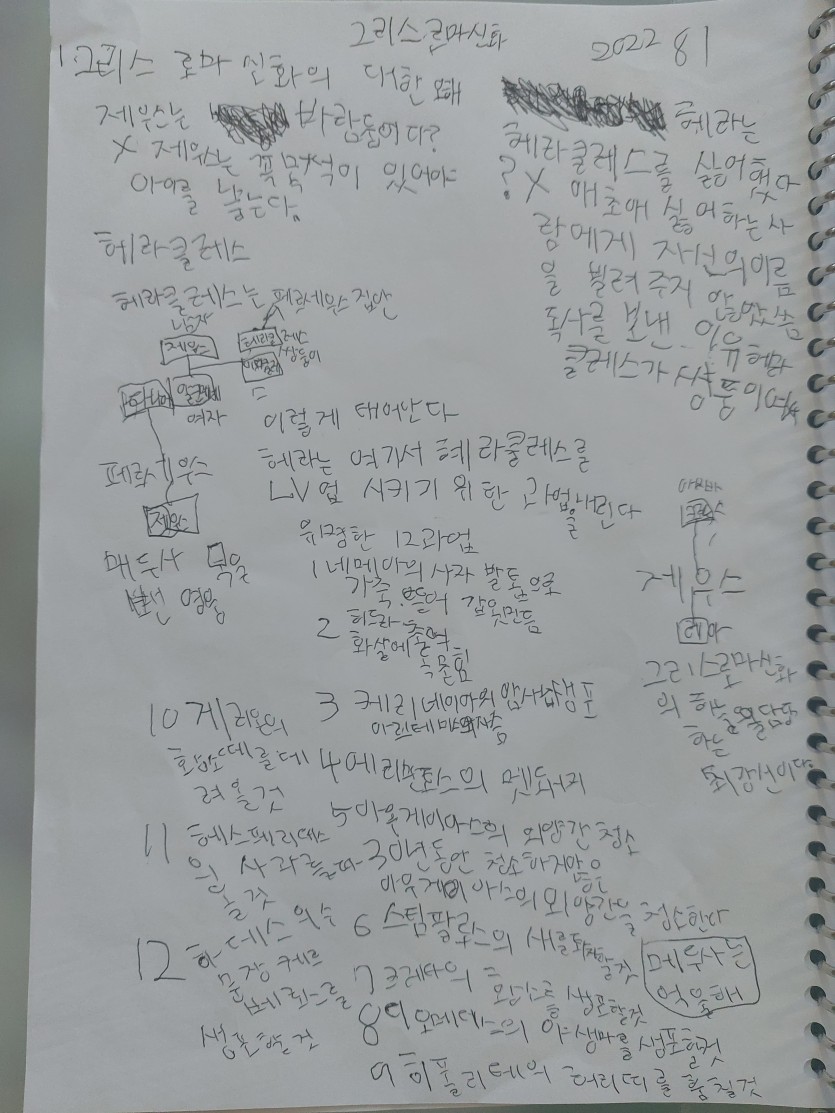 그리스로마신화
2022 8 1
1. 그리스 로마 신화의 대한 오해
제우스는 바람둥이다?
X 제우스는 꼭 목적이 있어야
아이를 낳는다.
헤라는
헤라클레스를 싫어했다
? X 애초에 싫어하는 사
람에게 자신의 이름
을 빌려주지 않았씀
독사를 보낸 이유 헤라
클레스가 쌍둥이여서
헤라클레스
헤라클레스는 페르세우스 집안
남자
제우스
헤라클레스
쌍둥이
여자
이렇게 태어난다
페르세우스
제우스
메두사 목을
영웅
헤라는 여기서 헤라클레스를
LV업 시키기 위한 과업을 내린다
유명한 12과업
1 네메아의 사자 발톱으로
가죽 뜯어 갑옷만듬
2 히드라
화살에
3 케리네이아의 암사슴생포
4 에리만토스의 멧돼지
5 아우게이아스의 외양간 청소
30년동안 청소하지않은
아우게이아스의 외양간을 청소한다
6 스팀팔로스의 새를 퇴치할것
7 크레타의 황소를 생포할것
8 디오메데스의 야생마를 생포할것
9 히폴리테의 허리띠를 훔칠것
10 게리온의
황소떼를 데
려올것
11 헤스페리데스
의 사과를 따
올것
12 하데스의 수
문장 케르
베로스를
생포할것
아빠
제우스
레아
그리스로마신화
의 하늘을 담당
하는
최강신이다
메두사는
억울해